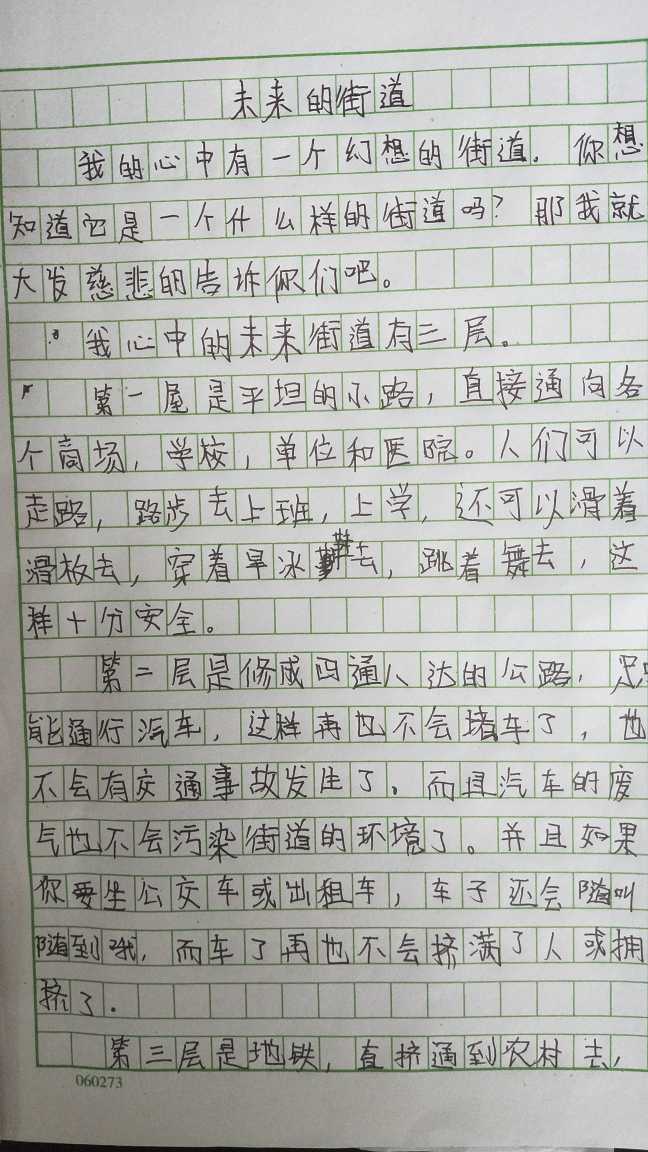 未来的街道
我的心中有一个幻想的街道．你想
知道它是一个什么样的街道吗？那我就
大发慈悲的告诉你们吧。
我心中的未来街道有三层。
第一屋是平坦的小路，直接通向各
个商场，学校，单位和医院。人们可以
走路，路步去上班，上学，还可以滑着
滑板去，穿着旱冰鞋去，跳着舞去，这
样十分安全。
第二层是修成四通八达的公路，只
能通行汽车，这样再也不会堵车了，也
不会有交通事故发生了．而且汽车的废
气也不会污染街道的环境了。并且如果
你要坐公交车或出租车，车子还会随叫
随到哦，而车子再也不会挤满了人或拥
挤了．
第三层是地铁，直挤通到农村去，
060273